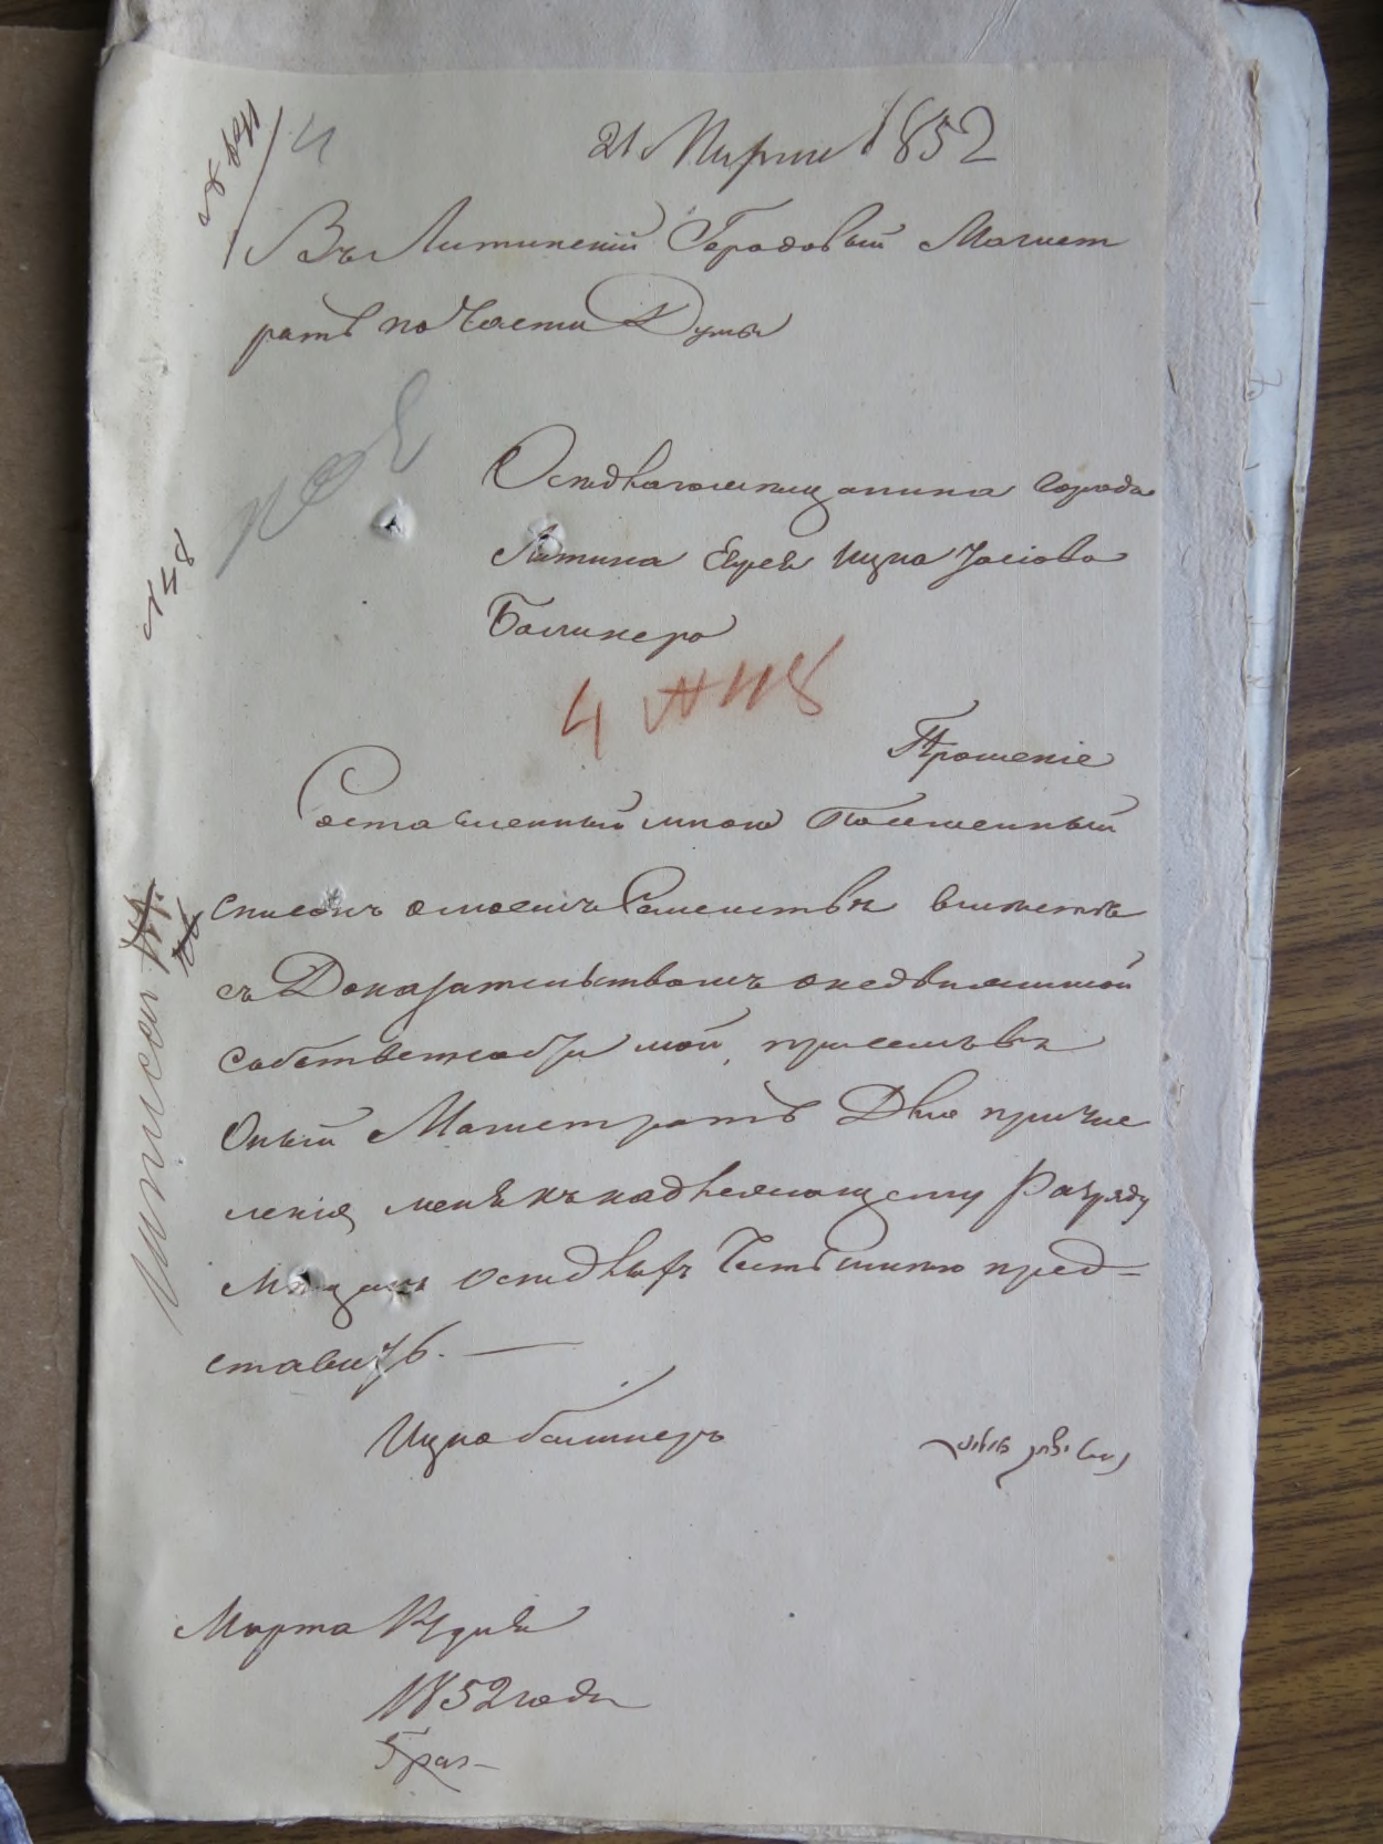 21 Марта 1852
Въ Литинскій Городовый Магист
ратъ по Части Думы
Оседлаго мещанина города
Литина Еврея Ицка Іосіова
Балинера
4 № 118
Прошеніе
Составленный мною Посемейный
списокъ о моемъ Семействѣ вместе
съ Доказательствомъ о недвижимой
собственности моей, при семъ въ
Оный Магистратъ Для причис
ленія меня къ надлежащему Разряду
Мѣщанъ оседлыхъ Честь имею пред-
ставить. —
Ицко Балинеръ
Марта дня
1852 года
№ 58